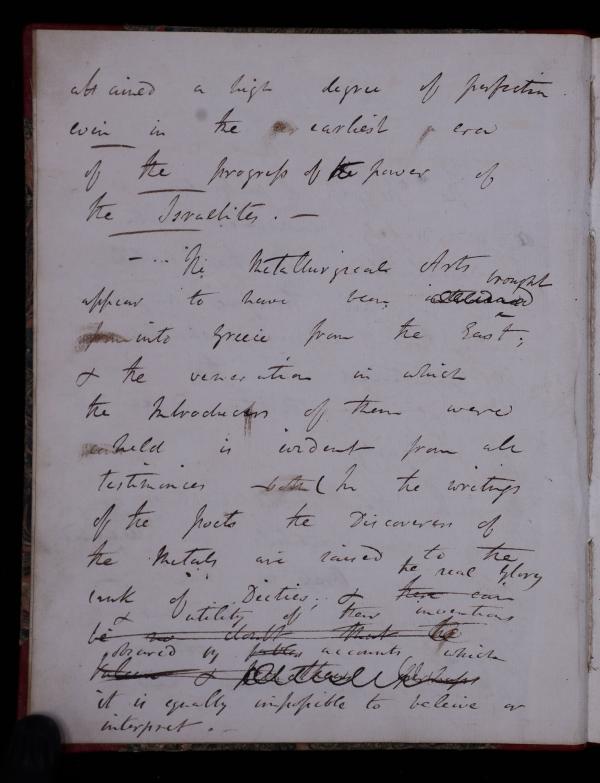 attained a high degree of perfection
even in the earliest era
of the progress of the power of
the Israelites. —
— ... The Metallurgical Arts
brought
appear to have been
into Greece from the East;
& the veneration in which
the Introducers of them were
held is evident from all
testimonies both (In the writings
of the Poets the Discoverers of
the Metals are raised to the
the real glory
rank of Deities; & there can
& utility of their inventions
be no doubt that the
obscured by accounts which
Vulcan & perhaps
it is equally impossible to beleive or
interpret. —